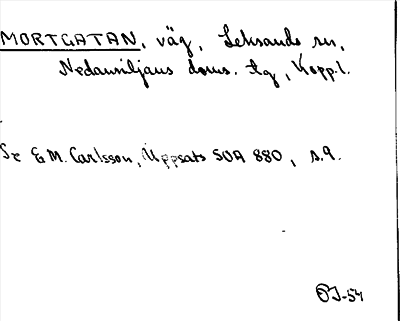 MORTGATAN, väg, Leksands sn,
Nedansiljans doms. tg, Kopp.l.
Se E M. Carlsson, Uppsats SOA 880, s.9.
ÖJ-54